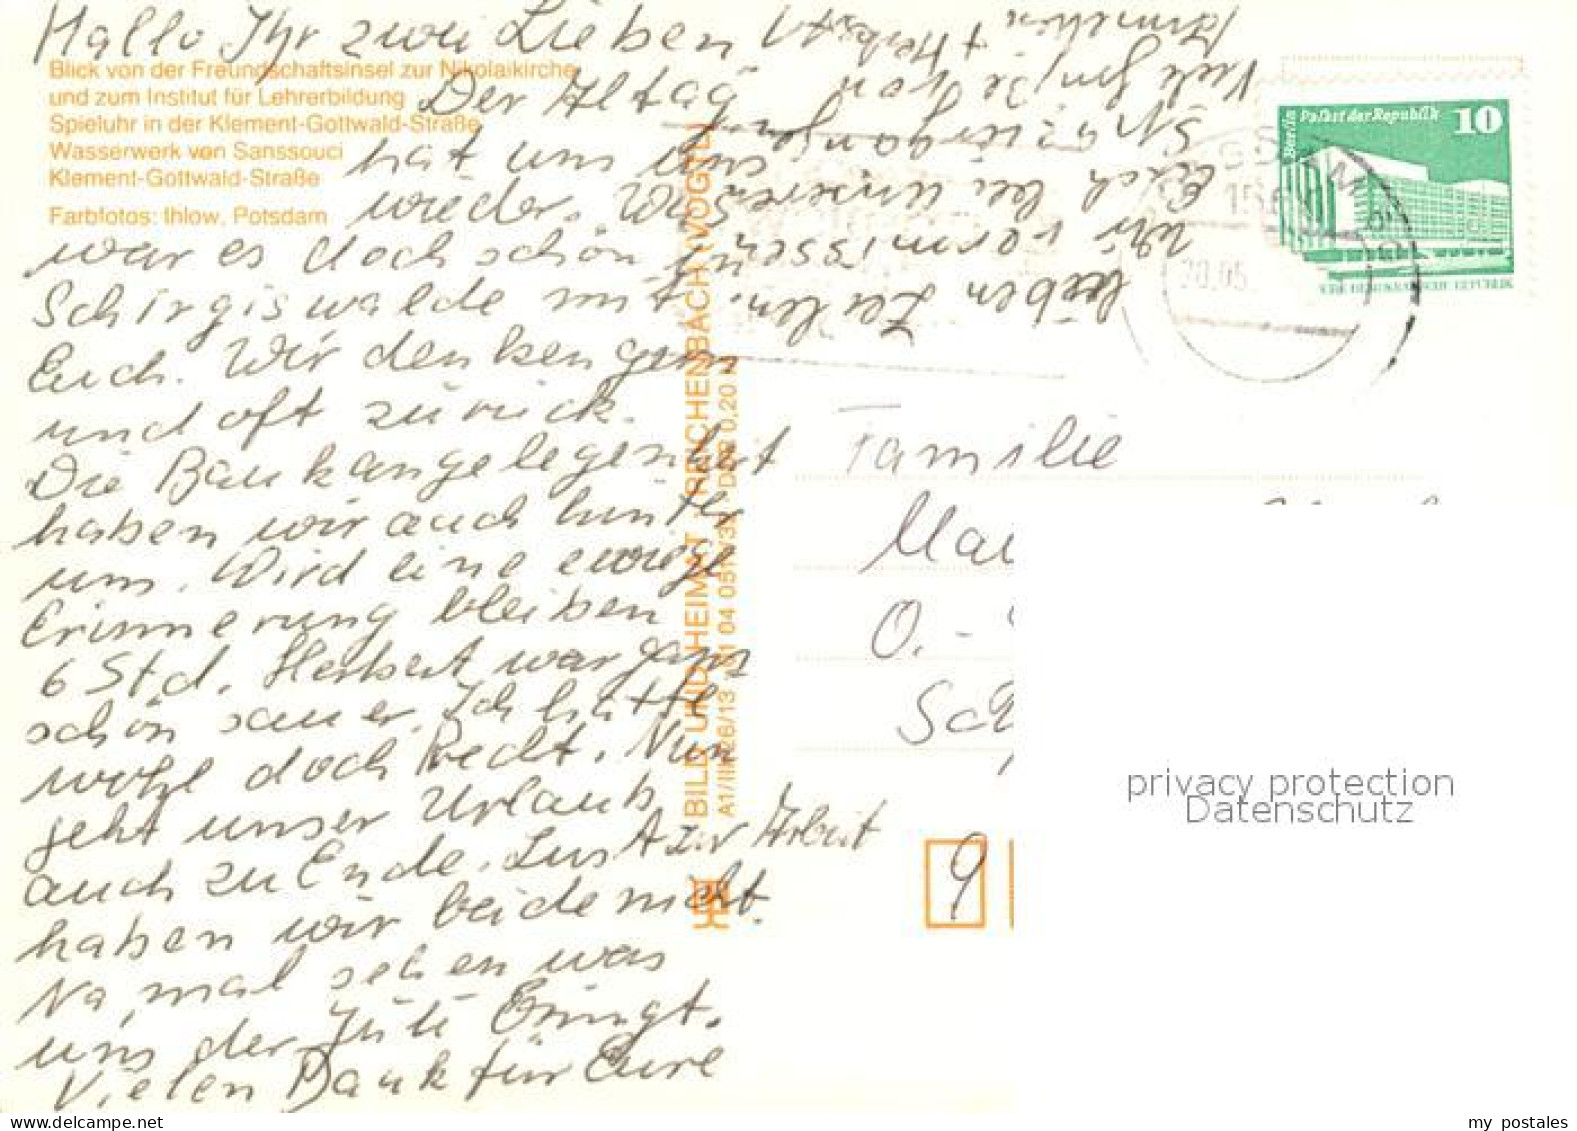 Hallo Ihr zwei Lieben
Blick von der Freundschaftsinsel zur Nikolaikirche
und zum Institut für Lehrerbildung
Spieluhr in der Klement-Gottwald-Straße
Wasserwerk von Sanssouci
Klement-Gottwald-Straße
Farbfotos: Ihlow, Potsdam
Der Altag
hat uns nun
wieder. Was
war es doch schön in
Schirgiswalde mit
Euch. Wir denken gern
und oft zurück.
Die Baukangelegenheit
haben wir auch hinter
uns. Wird eine ewige
Erinnerung bleiben
6 Std. Herbert war ganz
schön sauer. Ich hatte
wohl doch Recht. Nun
geht unser Urlaub
auch zu Ende. Lust zur Arbeit
haben wir beide nicht.
Na, mal sehen was
uns der Juli bringt.
Vielen Dank für Eure
lieben Zeilen.
Wir vermissen
Euch bei unseren
Spaziergängen
Viele Grüße von
Annelies + Herbert
BILD UND HEIMAT REICHENBACH (VOGTL)
A1/III/26/13 01 04 05
DDR 0,20 M
Berlin Palast der Republik 10
DEUTSCHE DEMOKRATISCHE REPUBLIK
Familie
O.-
9
privacy protection
Datenschutz
my postales